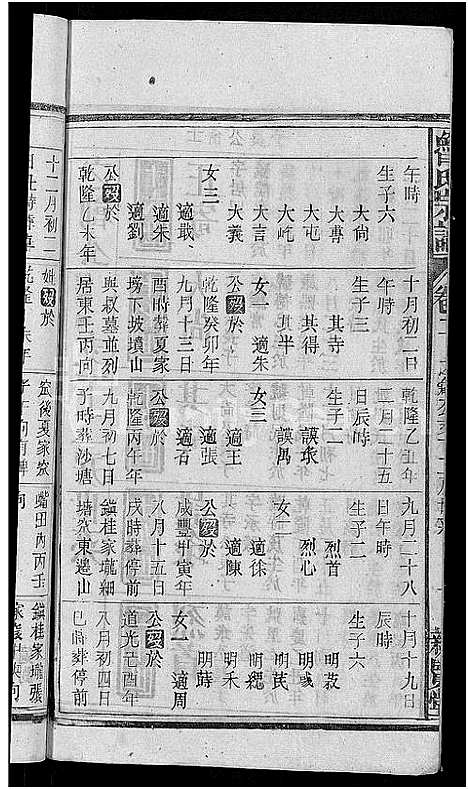 午時
生子六
大尚
大專
大屯
大屹
大義
女三
適戢
適朱
適劉
公歿於
乾隆乙未年
十二月初二
十月初二日
午時
生子三
其寺
其得
其半
女一
適朱
公歿於
乾隆癸卯年
九月十三日
酉時葬夏家
塝下坡墳山
與叔墓並列
居東壬丙向
妣歿於
乾隆乙丑年
二月二十五
日辰時
生子二
謨球
謨萬
女三
適王
適張
適石
公歿於
乾隆丙午年
九月初七日
子時葬沙塘
窊後夏家窊
九月二十八
日午時
生子二
烈首
烈心
女二
適徐
適陳
公歿於
咸豐甲寅年
八月十五日
戌時葬停前
鎮桂家壠細
塘窊東邊山
嘴田內丙壬
十月十九日
辰時
生子六
明菽
明彧
明芪
明緦
明禾
明蒔
女一
適周
公歿於
道光己酉年
八月初四日
巳時葬停前
鎮桂家壠張